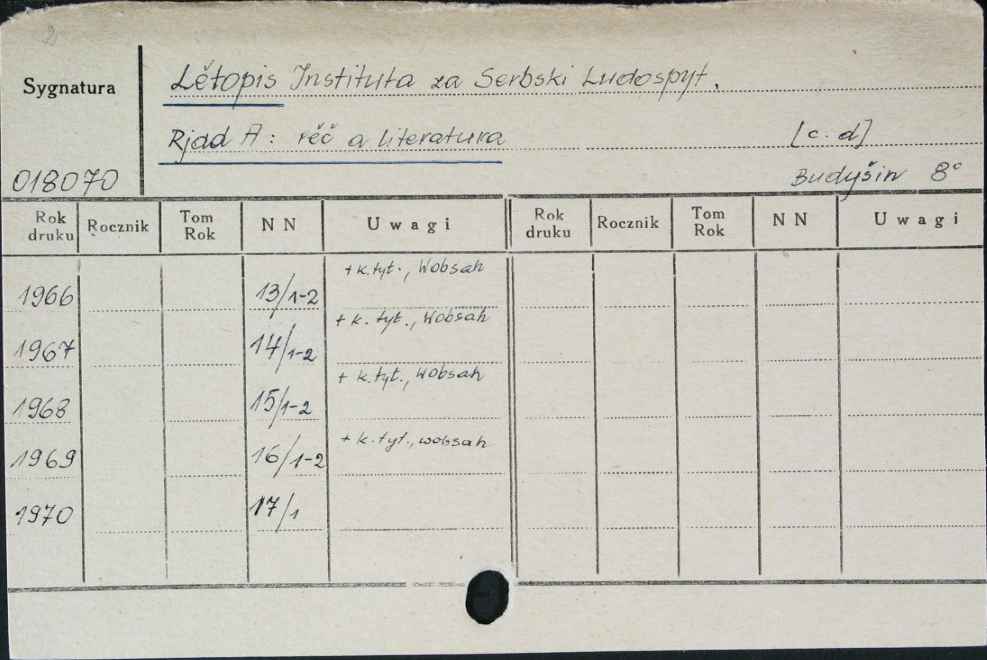 2
Sygnatura
Lětopis Instituta za Serbski Ludospyt.
Rjad A: rěč a literatura [c. d]
018070 Budyšin 8°
Rok druku Rocznik Tom Rok NN Uwagi Rok druku Rocznik Tom Rok NN Uwagi
1966 13/1-2 + k. tyt., Wobsah
1967 14/1-2 + k. tyt., Wobsah
1968 15/1-2 + k. tyt., Wobsah
1969 16/1-2 + k. tyt., wobsah
1970 17/1